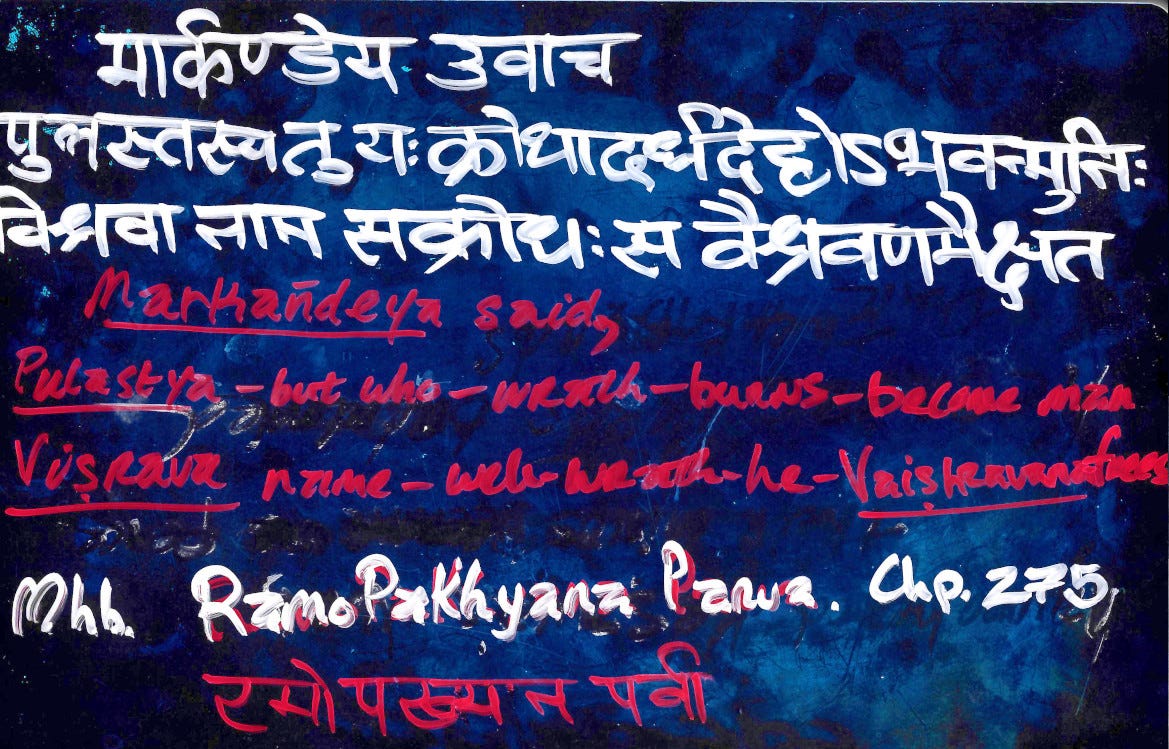 मार्कण्डेय उवाच
पुलस्तस्चतु यःक्रोधादर्धदेहोऽभवन्मुनिः
विश्रवा नाम सक्रोधःस वैश्रवणमैक्षत
Markañdeya said,
Pulastya - but who - wrath - burns - became man
Viṣrava name - well-wrath-he-Vaiṣhravana
Mhb. RamoPakhyana Parva. Chp. 275,
रमोपख्यन पर्वा